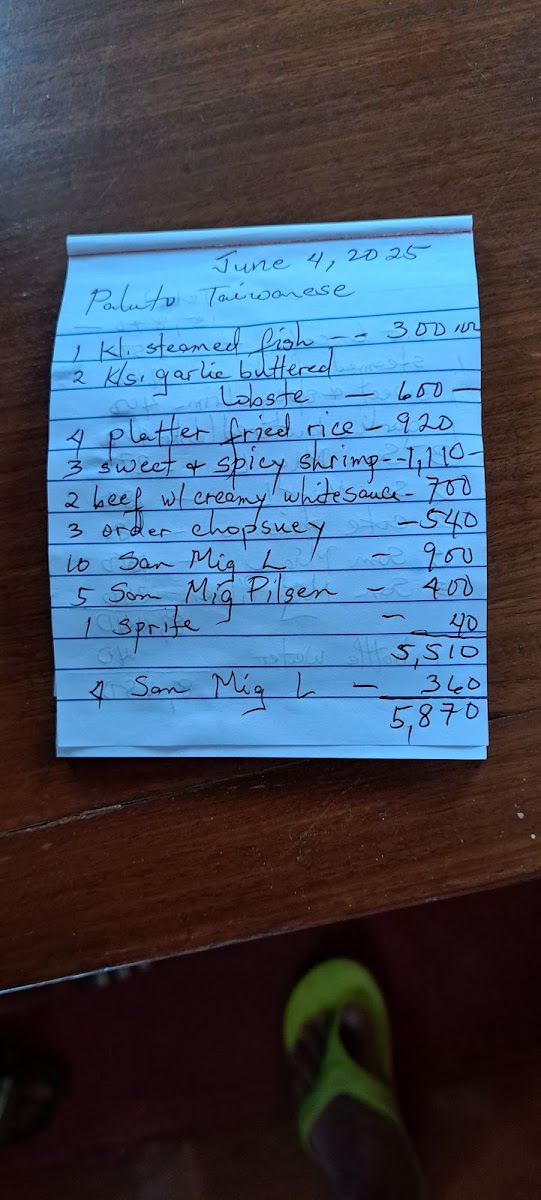 June 4, 2025
Paluto Taiwanese
1 Kl. steamed fish -- 300
2 Kls. garlic buttered
lobste — 600 —
4 platter fried rice - 920
3 sweet & spicy shrimp--1,110-
2 beef w/ creamy white sauce - 700
3 order chopsuey - 540
10 San Mig L - 900
5 San Mig Pilsen - 400
1 Sprite - 40
5,510
4 San Mig L — 360
5,870